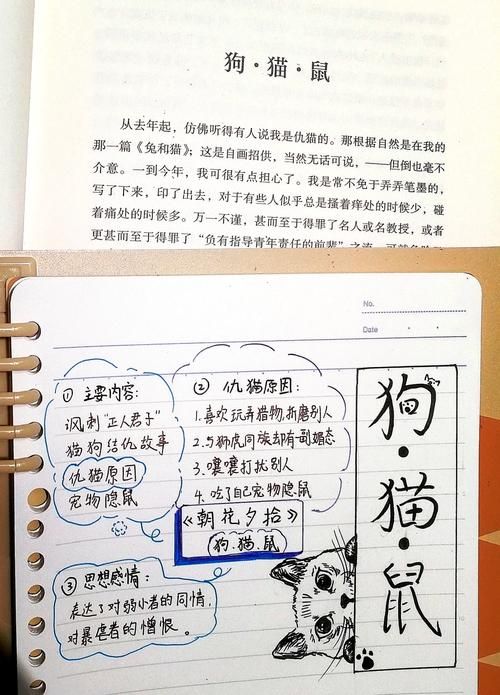 狗·猫·鼠
从去年起，仿佛听得有人说我是仇猫的。那根据自然是在我的
那一篇《兔和猫》；这是自画招供，当然无话可说，——但倒也毫不
介意。一到今年，我可很有点担心了。我是常不免于弄弄笔墨的，
写了下来，印了出去，对于有些人似乎总是搔着痒处的时候少，碰
着痛处的时候多。万一不谨，甚而至于得罪了名人或名教授，或者
更甚而至于得罪了“负有指导青年责任的前辈”之流，可就危险
No.
Date
① 主要内容：
讽刺“正人君子”
猫狗结仇故事
仇猫原因
宠物隐鼠
② 仇猫原因：
1.喜欢玩弄猎物,折磨别人
2.与狮虎同族却有一副媚态
3.嚷嚷打扰别人
4.吃了自己宠物隐鼠
《朝花夕拾》
狗.猫.鼠
③ 思想感情：
表达了对弱小者的同情，
对暴虐者的憎恨。
狗·猫·鼠